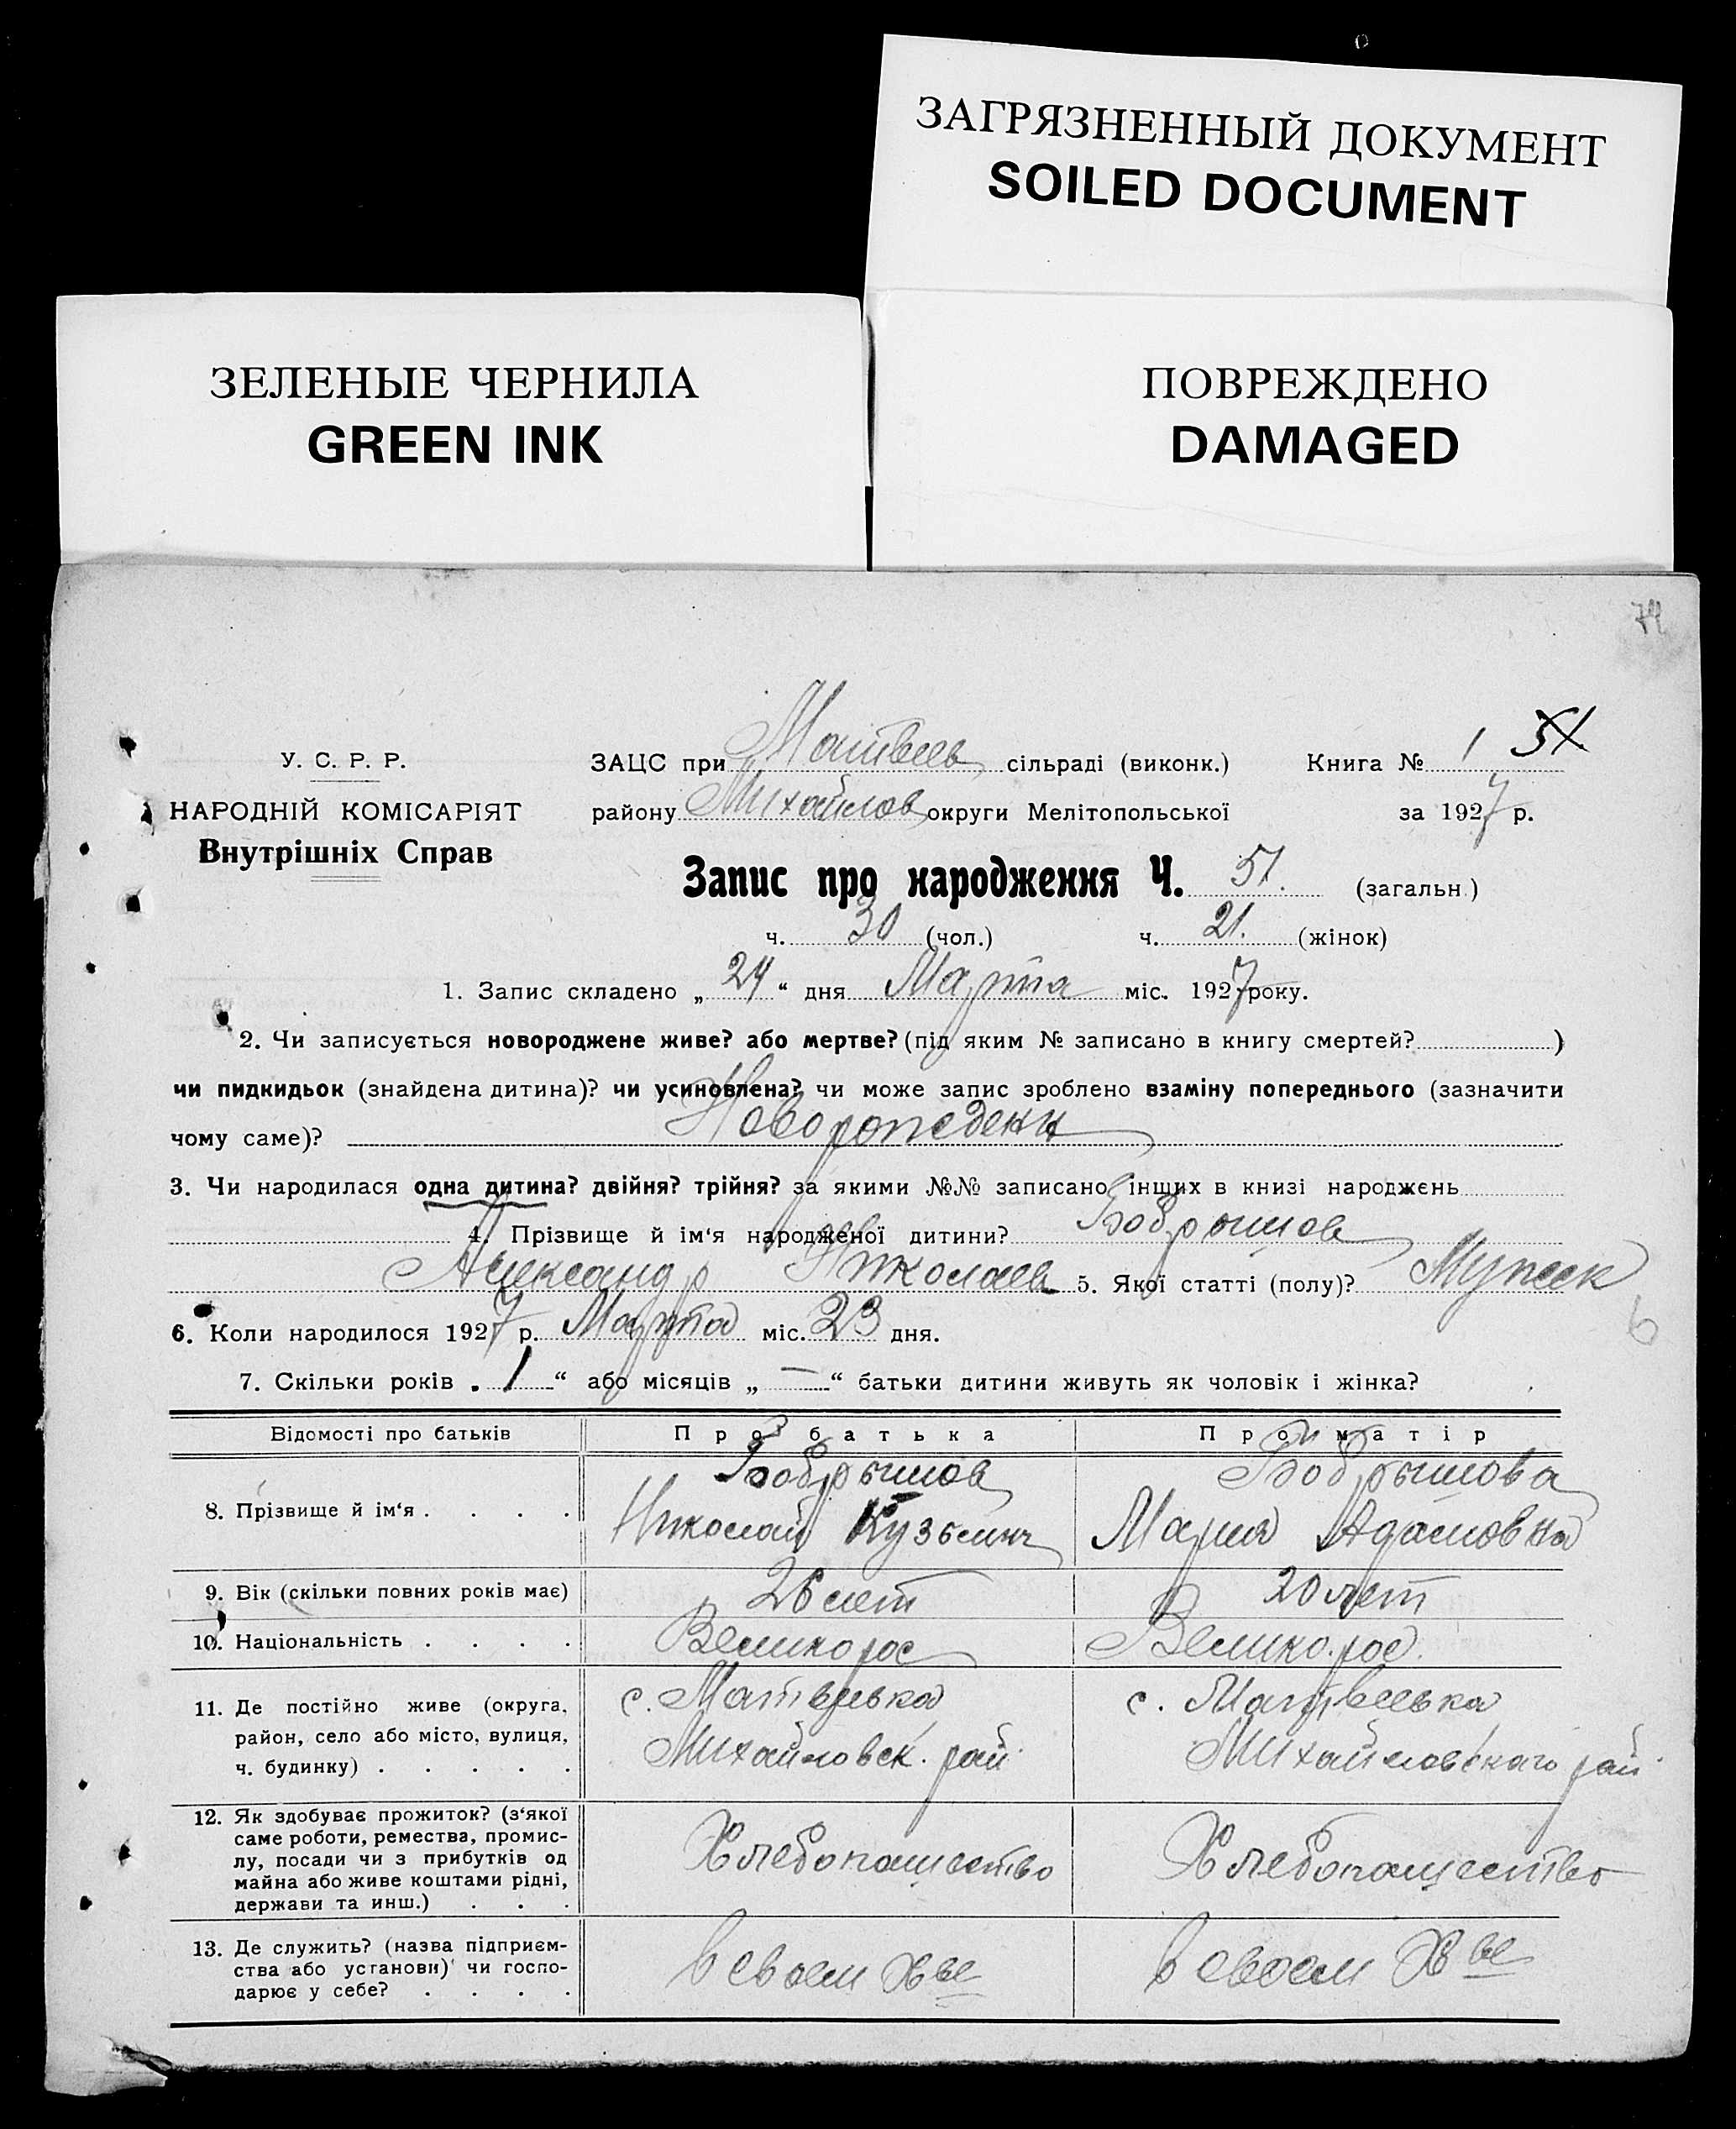 ЗАГРЯЗНЕННЫЙ ДОКУМЕНТ
SOILED DOCUMENT
ЗЕЛЕНЫЕ ЧЕРНИЛА
GREEN INK
ПОВРЕЖДЕНО
DAMAGED
74
У. С. Р. Р.
НАРОДНІЙ КОМІСАРІЯТ
Внутрішніх Справ
ЗАЦС при Матвеев сільраді (виконк.) Книга № 1 51
району Михайлов округи Мелітопольської за 1927 р.
Запис про народження Ч. 51. (загальн.)
ч. 30 (чол.) ч. 21. (жінок)
1. Запис складено „ 24 “ дня Марта міс. 1927 року.
2. Чи записується новороджене живе? або мертве? (під яким № записано в книгу смертей? )
чи пидкидьок (знайдена дитина)? чи усиновлена? чи може запис зроблено взаміну попереднього (зазначити
чому саме)? Новорожедени
3. Чи народилася одна дитина? двійня? трійня? за якими №№ записано інших в книзі народжєнь
4. Прізвище й ім‘я народженої дитини? Бобрышов
Александр Николаев 5. Якої статті (полу)? Мужск
6. Коли народилося 1927 р. Марта міс. 23 дня.
7. Скільки років „ 1 “ або місяців „ — “ батьки дитини живуть як чоловік і жінка?
Відомості про батьків Про батька Про матір
8. Прізвище й ім‘я . . . .
Бобрышов
Николай Кузьмич
Бобрышова
Мария Адамовна
9. Вік (скільки повних років має) 26 лет 20 лет
10. Національність . . . . Великорос Велико.рос.
11. Де постійно живе (округа,
район, село або місто, вулиця,
ч. будинку) . . . . .
с. Матвеевка
Михайловск. рай.
с. Матвеевка
Михайловскаго рай.
12. Як здобуває прожиток? (з‘якої
саме роботи, ремества, промис-
лу, посади чи з прибутків од
майна або живе коштами рідні,
держави та инш.) . . .
Хлебопашество
Хлебопашество
13. Де служить? (назва підприєм-
ства або установи) чи госпо-
дарює у себе? . . . .
в своем Х-ве
в своем Х-ве